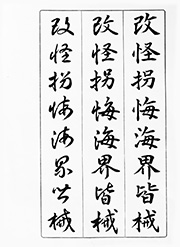 改怪拐悔海界皆械
改怪拐悔海界皆械
改怪拐悔海界皆械